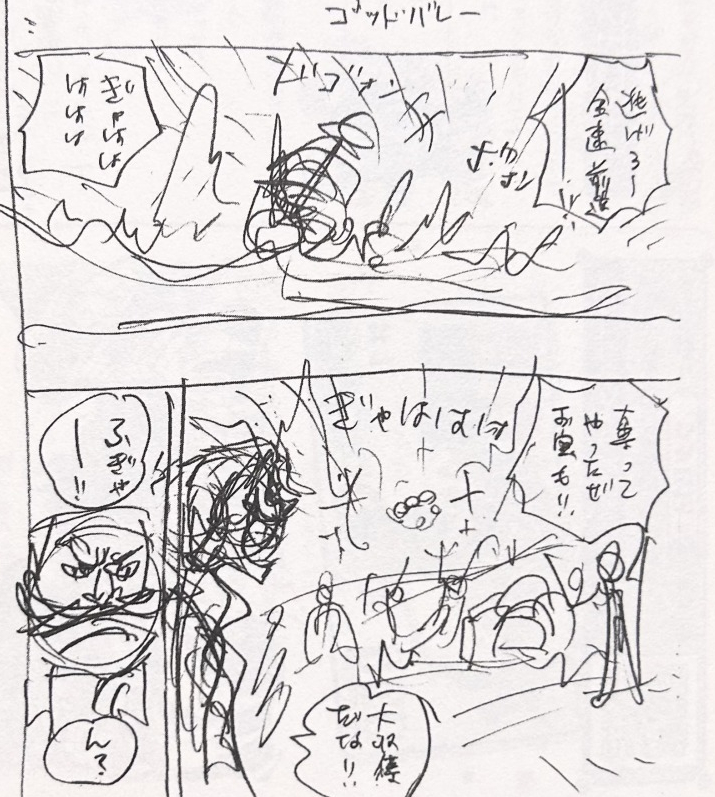 ゴッドバレー
逃げろ〜
全速前進!!
ドゴォン
ぎゃはは
ははは
奪って
やったぜ
お宝も!!
ぎゃはははは
大収穫
だな!!
ふぎゃ
ー!!
ん?